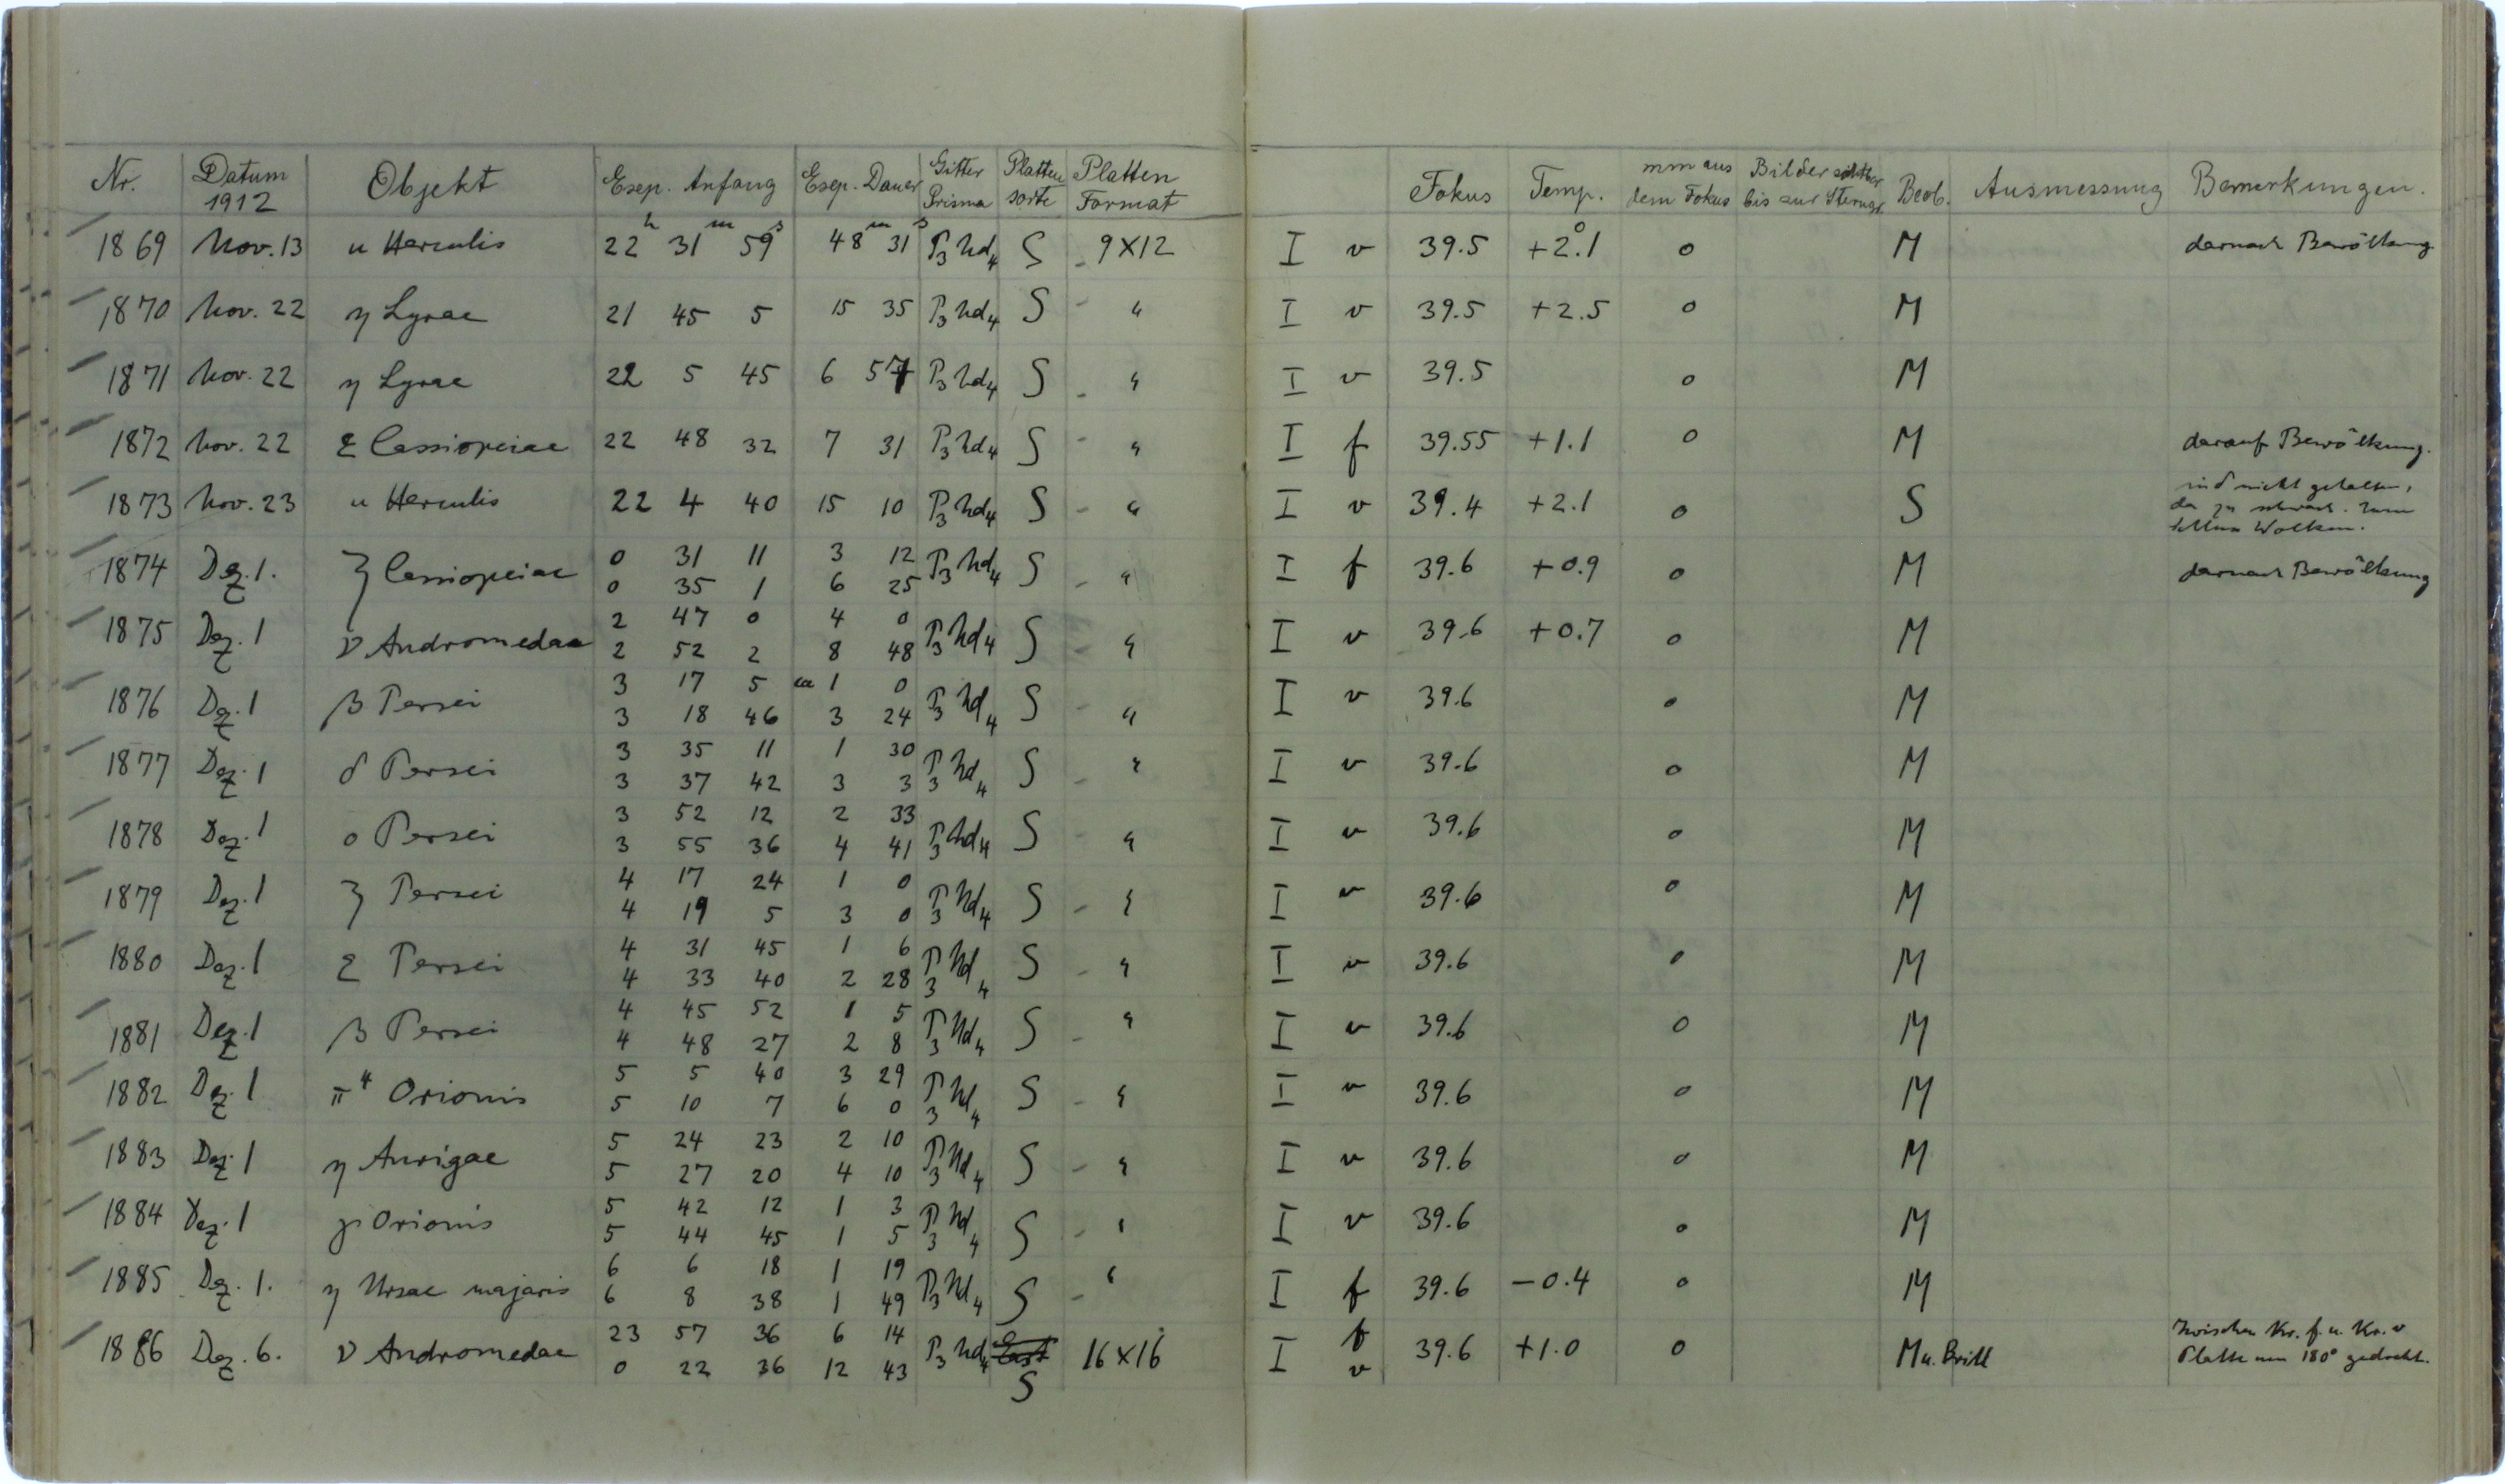 Nr. Datum 1912 Objekt Exp. Anfang Exp. Dauer Gitter Prisma Platten sorte Platten Format Fokus Temp. mm aus dem Fokus Bilder sichtbar bis zur Sterngr. Beob. Ausmessung Bemerkungen.
1869 Nov. 13 u Herculis 22h 31m 59s 48m 31s P3 Hd4 S - 9X12 I v 39.5 +2°.1 0 M darnach Bewölkung.
1870 Nov. 22 η Lyrae 21 45 5 15 35 P3 Hd4 S - " I v 39.5 +2.5 0 M
1871 Nov. 22 η Lyrae 22 5 45 6 57 P3 Hd4 S - " I v 39.5 0 M
1872 Nov. 22 ε Cassiopeiae 22 48 32 7 31 P3 Hd4 S - " I f 39.55 +1.1 0 M darauf Bewölkung.
1873 Nov. 23 u Herculis 22 4 40 15 10 P3 Hd4 S - " I v 39.4 +2.1 0 S nicht gehalten,
da zu schwach. Wolken.
1874 Dez. 1. ζ Cassiopeiae 0 31 11 3 12 P3 Hd4 S - " I f 39.6 +0.9 0 M darnach Bewölkung
0 35 1 6 25
1875 Dez. 1 ν Andromedae 2 47 0 4 0 P3 Hd4 S - " I v 39.6 +0.7 0 M
2 52 2 8 48
1876 Dez. 1 β Persei 3 17 5 ca 1 0 P3 Hd4 S - " I v 39.6 0 M
3 18 46 3 24
1877 Dez. 1 δ Persei 3 35 11 1 30 P3 Hd4 S - " I v 39.6 0 M
3 37 42 3 3
1878 Dez. 1 o Persei 3 52 12 2 33 P3 Hd4 S - " I v 39.6 0 M
3 55 36 4 41
1879 Dez. 1 ζ Persei 4 17 24 1 0 P3 Hd4 S - " I v 39.6 0 M
4 19 5 3 0
1880 Dez. 1 ε Persei 4 31 45 1 6 P3 Hd4 S - " I v 39.6 0 M
4 33 40 2 28
1881 Dez. 1 β Persei 4 45 52 1 5 P3 Hd4 S - " I v 39.6 0 M
4 48 27 2 8
1882 Dez. 1 π⁴ Orionis 5 5 40 3 29 P3 Hd4 S - " I v 39.6 0 M
5 10 7 6 0
1883 Dez. 1 η Aurigae 5 24 23 2 10 P3 Hd4 S - " I v 39.6 0 M
5 27 20 4 10
1884 Dez. 1 γ Orionis 5 42 12 1 3 P3 Hd4 S - " I v 39.6 0 M
5 44 45 1 5
1885 Dez. 1. η Ursae majoris 6 6 18 1 19 P3 Hd4 S - " I f 39.6 -0.4 0 M
6 8 38 1 49
1886 Dez. 6. ν Andromedae 23 57 36 6 14 P3 Hd4 S 16X16 I f 39.6 +1.0 0 M u. Brill Zwischen Kr. f. u. Kr. v
0 22 36 12 43 v Platte um 180° gedreht.